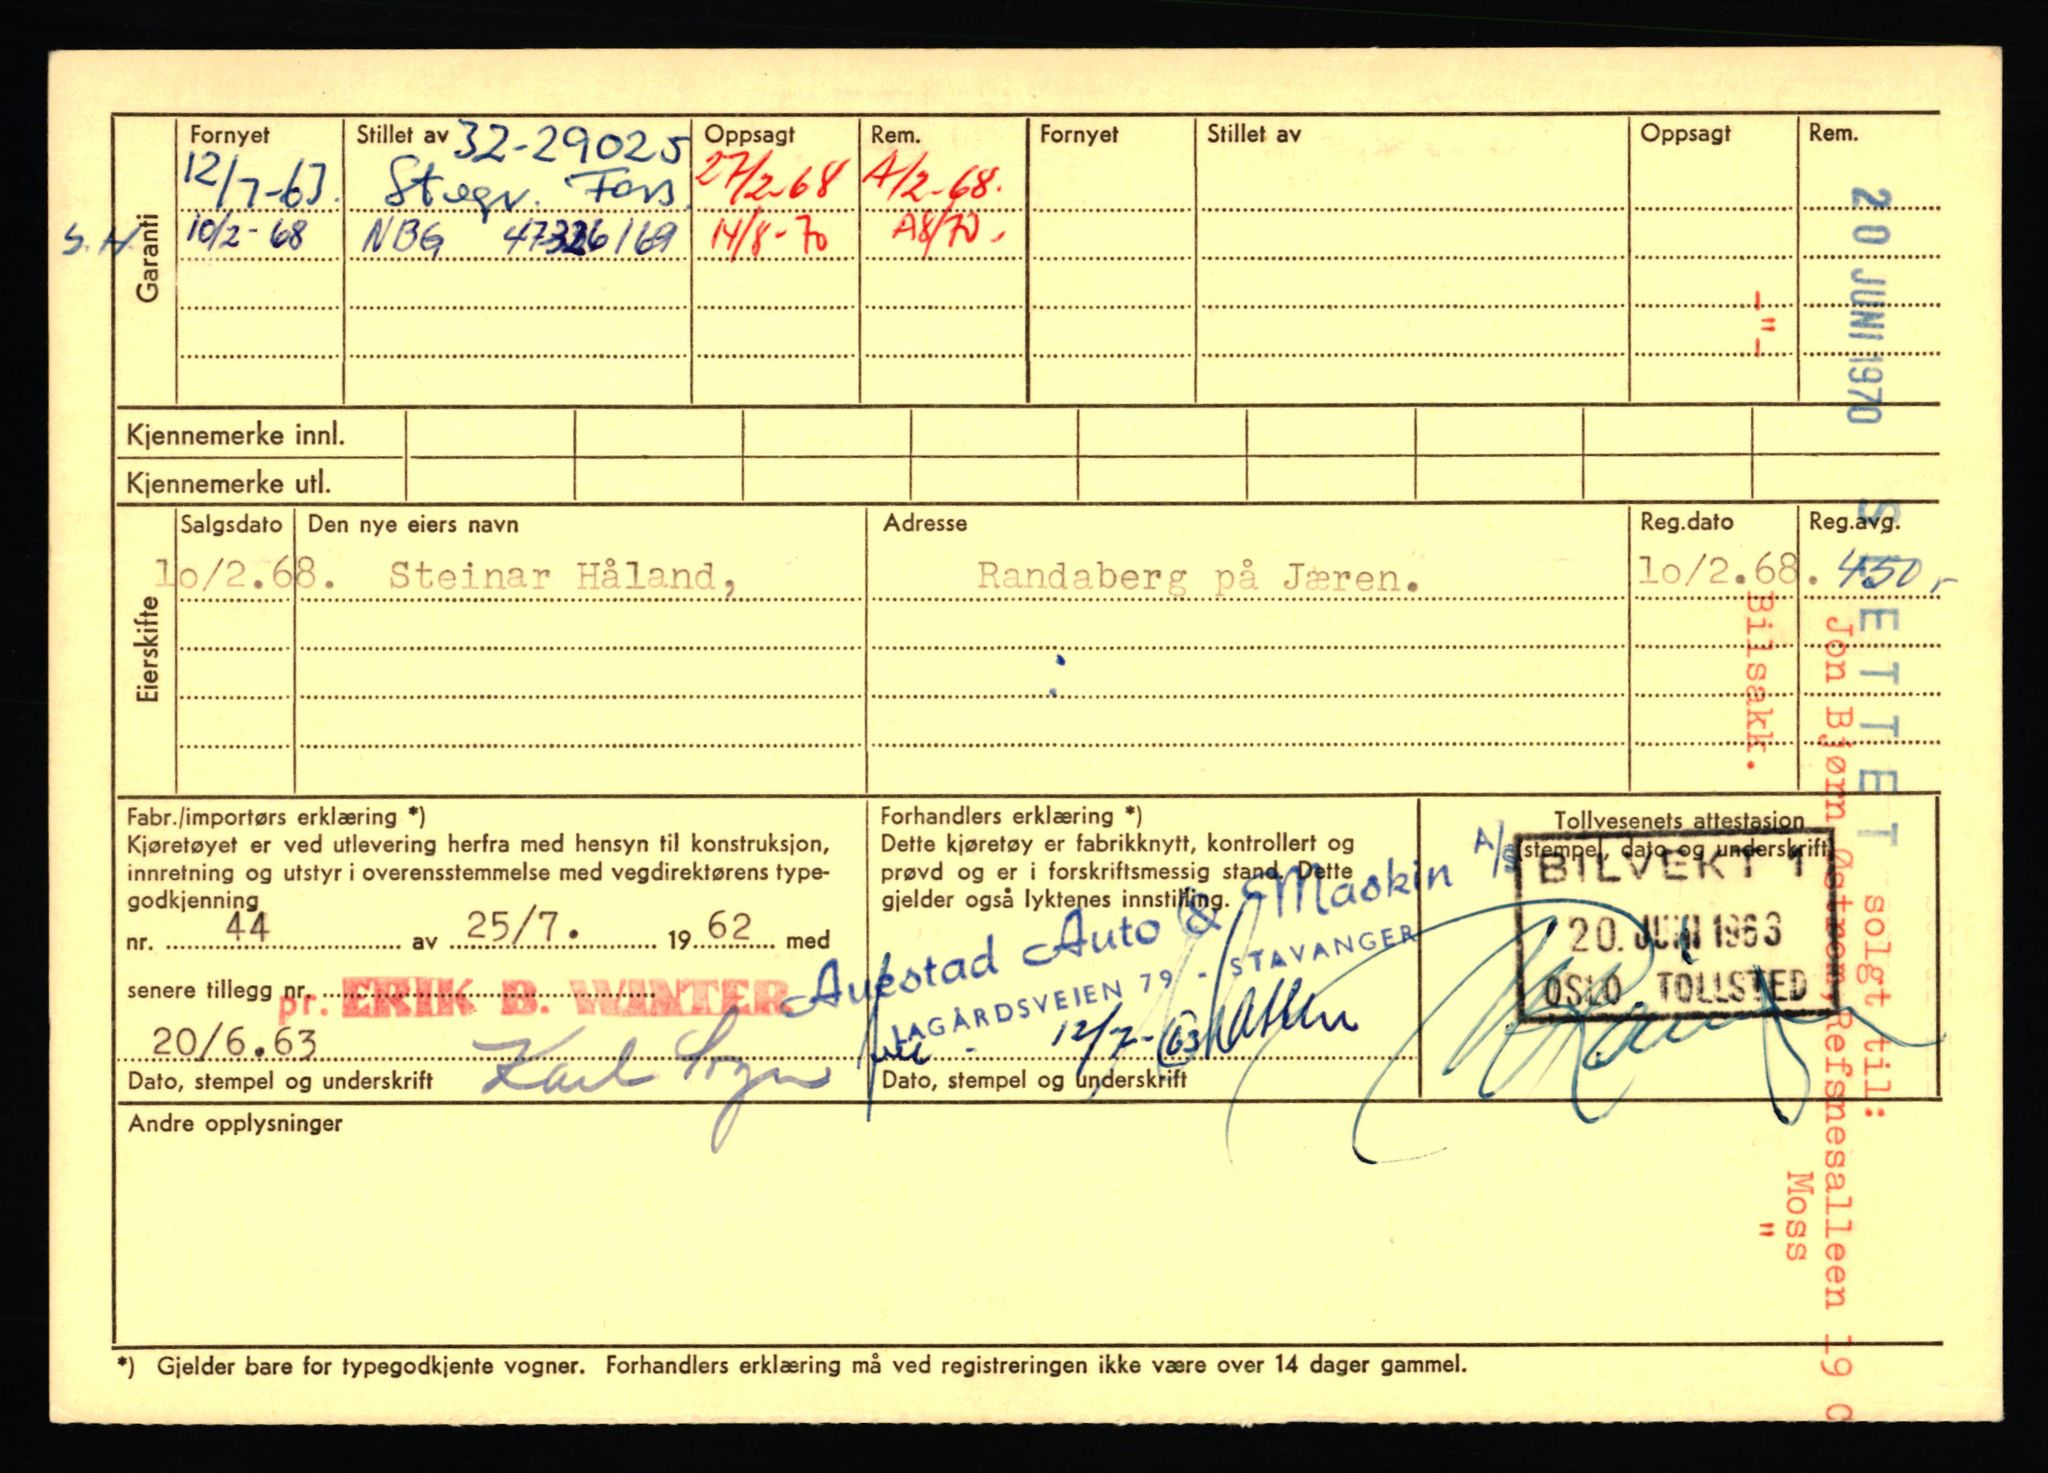 Garanti
Fornyet Stillet av Oppsagt Rem. Fornyet Stillet av Oppsagt Rem.
32-29025
12/7-63. Stegv. Fors. 27/2-68 A/2-68.
S.H. 10/2-68 NBG 47326/69 14/8-70 A8/70.
Kjennemerke innl.
Kjennemerke utl.
Eierskifte
Salgsdato Den nye eiers navn Adresse Reg.dato Reg.avg.
lo/2.68. Steinar Håland, Randaberg på Jæren. lo/2.68. 450,-
Fabr./importørs erklæring *)
Kjøretøyet er ved utlevering herfra med hensyn til konstruksjon,
innretning og utstyr i overensstemmelse med vegdirektørens type-
godkjenning
nr. 44 av 25/7. 19 62 med
senere tillegg nr.
pr. ERIK B. WINTER
20/6.63
Karl
Dato, stempel og underskrift
Forhandlers erklæring *)
Dette kjøretøy er fabrikknytt, kontrollert og
prøvd og er i forskriftsmessig stand. Dette
gjelder også lyktenes innstilling.
Auestad Auto & Maskin A/S
LAGÅRDSVEIEN 79 - STAVANGER
12/7-63
Dato, stempel og underskrift
Tollvesenets attestasjon
(stempel, dato og underskrift)
BILVEKT 1
20. JUNI 1963
OSLO TOLLSTED
Andre opplysninger
*) Gjelder bare for typegodkjente vogner. Forhandlers erklæring må ved registreringen ikke være over 14 dager gammel.
20 JUNI 1970 SLETTET
solgt til:
Jon Bjørn Østrem, Refsnesalleen 19 c
Moss
-"- Bilsakk. "